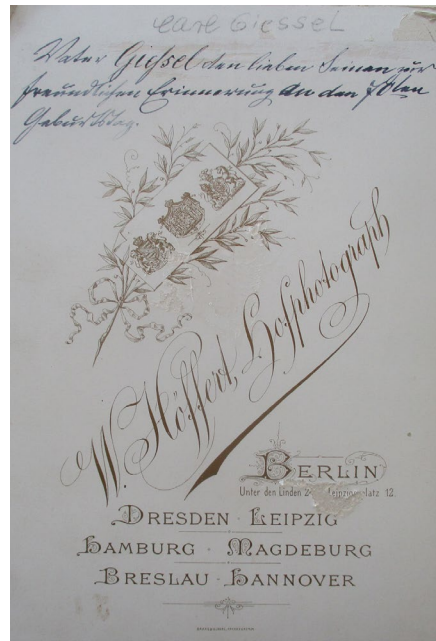 Carl Giessel
Vater Gießel den lieben Seinen zur
freundlichen Erinnerung an den 70ten
Geburtstag.
W. Höffert, Hofphotograph
BERLIN
Unter den Linden 24 Leipziger Platz 12.
DRESDEN · LEIPZIG
HAMBURG · MAGDEBURG
BRESLAU · HANNOVER